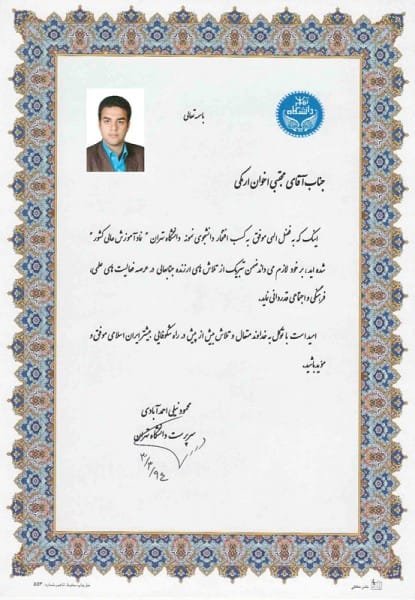 باسمه تعالی
دانشگاه
تهران
جناب آقای مجتبی اخوان ارمکی
اینک که به فضل الهی موفق به کسب افتخار دانشجوی نمونه دانشگاه تهران " نماد آموزش عالی کشور "
شده اید، بر خود لازم می داند ضمن تبریک از تلاش های ارزنده جنابعالی در عرصه فعالیت های علمی،
فرهنگی و اجتماعی قدردانی نماید.
امید است با توکل به خداوند متعال و تلاش بیش از پیش در راه شکوفایی بیشتر ایران اسلامی موفق و
مؤید باشید.
محمود نیلی احمدآبادی
سرپرست دانشگاه تهران